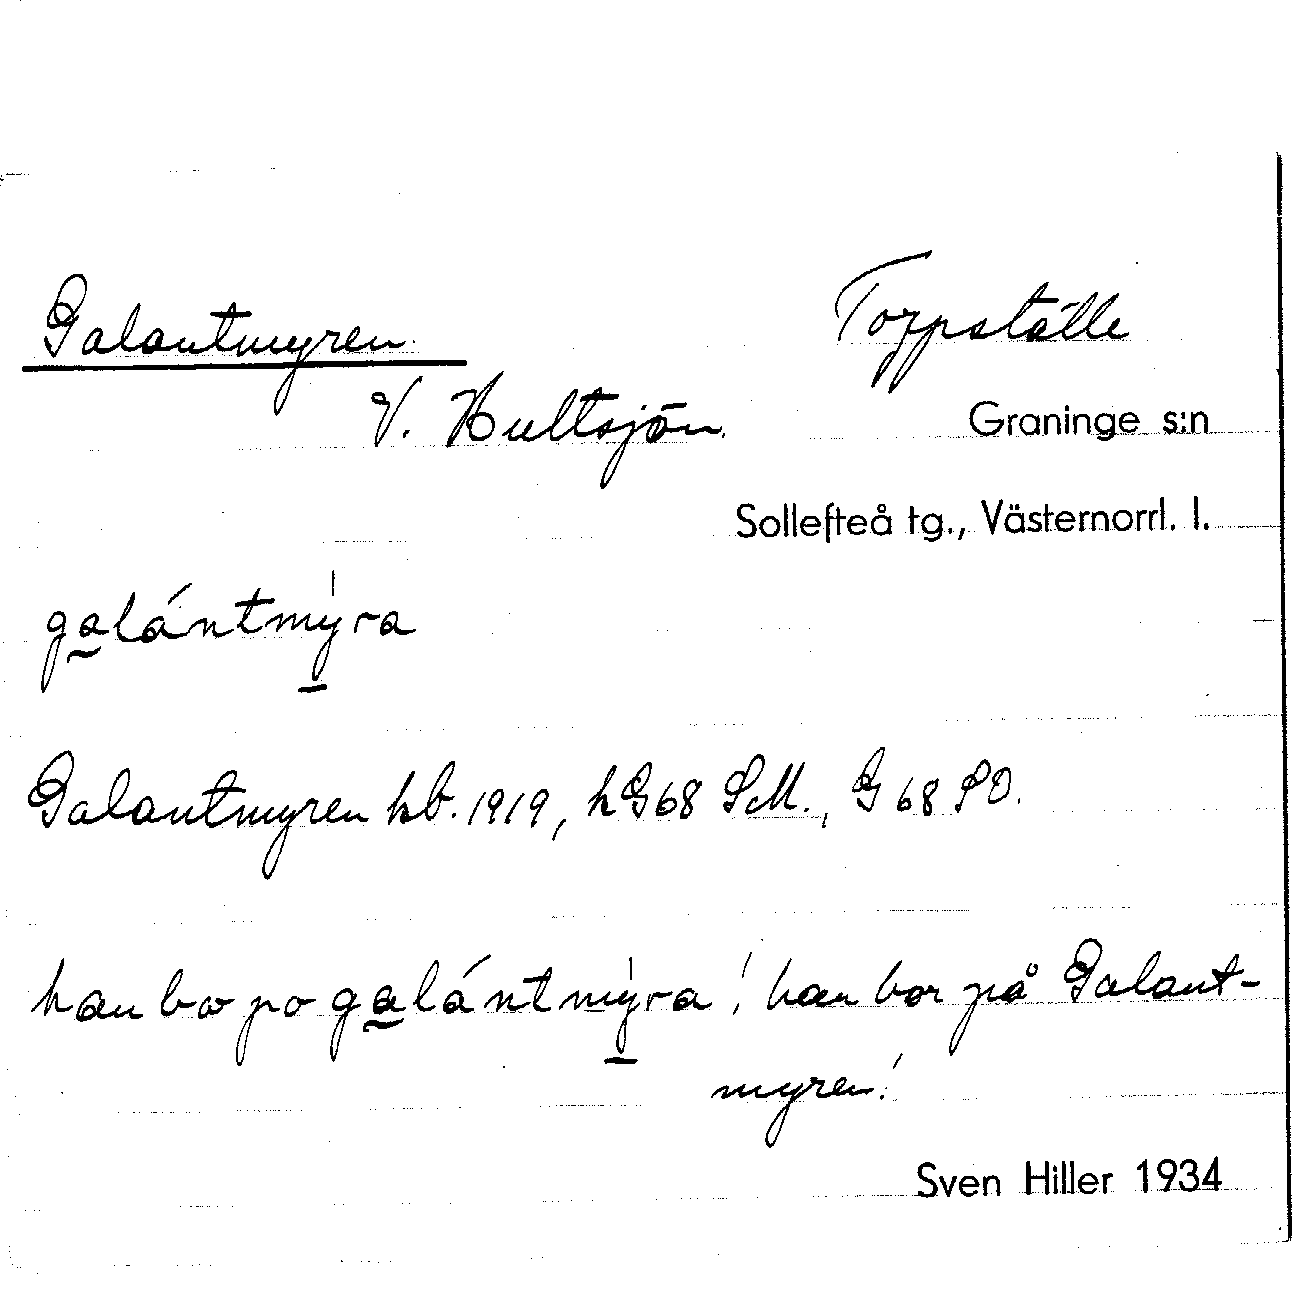 Galantmyren Torpställe
V. Hultsjön. Graninge s:n
Sollefteå tg., Västernorrl. l.
ga̲lántmý̲ra
Galantmyren hb. 1919, hG68 SM., G68 SO.
han bor po ga̲lántmý̲ra 'han bor på Galant-
myren.'
Sven Hiller 1934